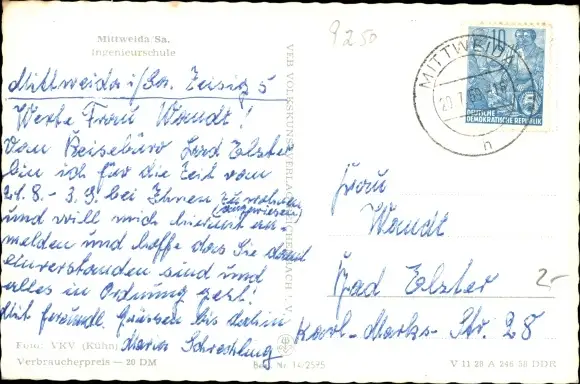 Mittweida/Sa.
Ingenieurschule
Mittweida i/Sa. Zeisig 5
Werte Frau Wandt!
Vom Reisebüro Bad Elster
bin ich für die Zeit vom
21.8. - 3.9. bei Ihnen zu wohnen
(angewiesen)
und will mich hiermit an-
melden und hoffe das Sie damit
einverstanden sind und
alles in Ordnung geht!
Mit freundl. Grüssen bis dahin
Maria
Foto: VKV (Kühn)
Verbraucherpreis — 20 DM
Best. Nr. 14/2595
VEB VOLKSKUNSTVERLAG REICHENBACH i. V.
9250
MITTWEIDA
10
DEUTSCHE
DEMOKRATISCHE REPUBLIK
n
Frau
Wandt
Bad Elster
Karl-Marks-Str. 28
2-
V 11 28 A 246 58 DDR